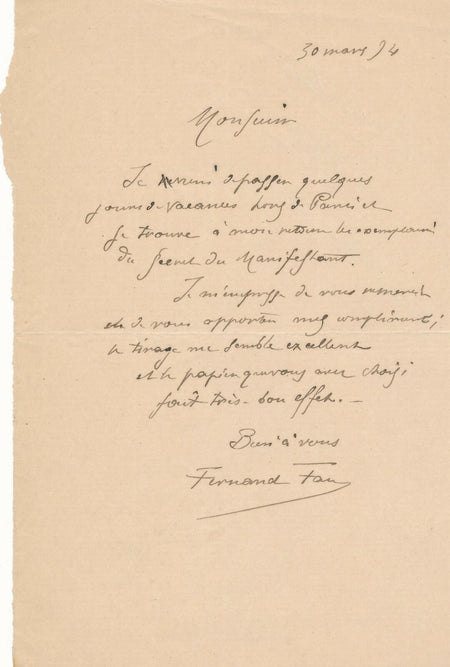 30 mars 94
Monsieur
Je viens de passer quelques
jours de vacances hors de Paris et
je trouve à mon retour les exemplaires
du Secret du Manifestant.
Je m'empresse de vous remercier
et de vous apporter mes compliments ;
le tirage me semble excellent
et le papier que vous avez choisi
fait très-bon effet. —
Bien à vous
Fernand Fau